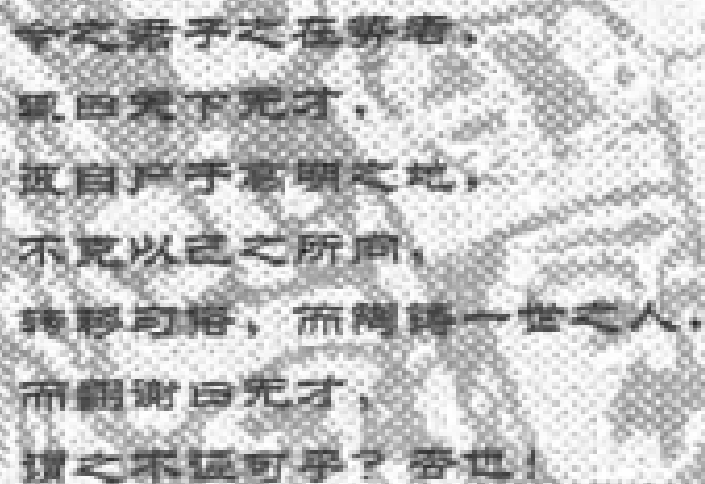 今之君子之在势者，
辄曰天下无才，
彼自尸于高明之地，
不克以己之所向，
转移习俗，而陶铸一世之人，
而翻谢曰无才，
谓之不诬可乎？否也！